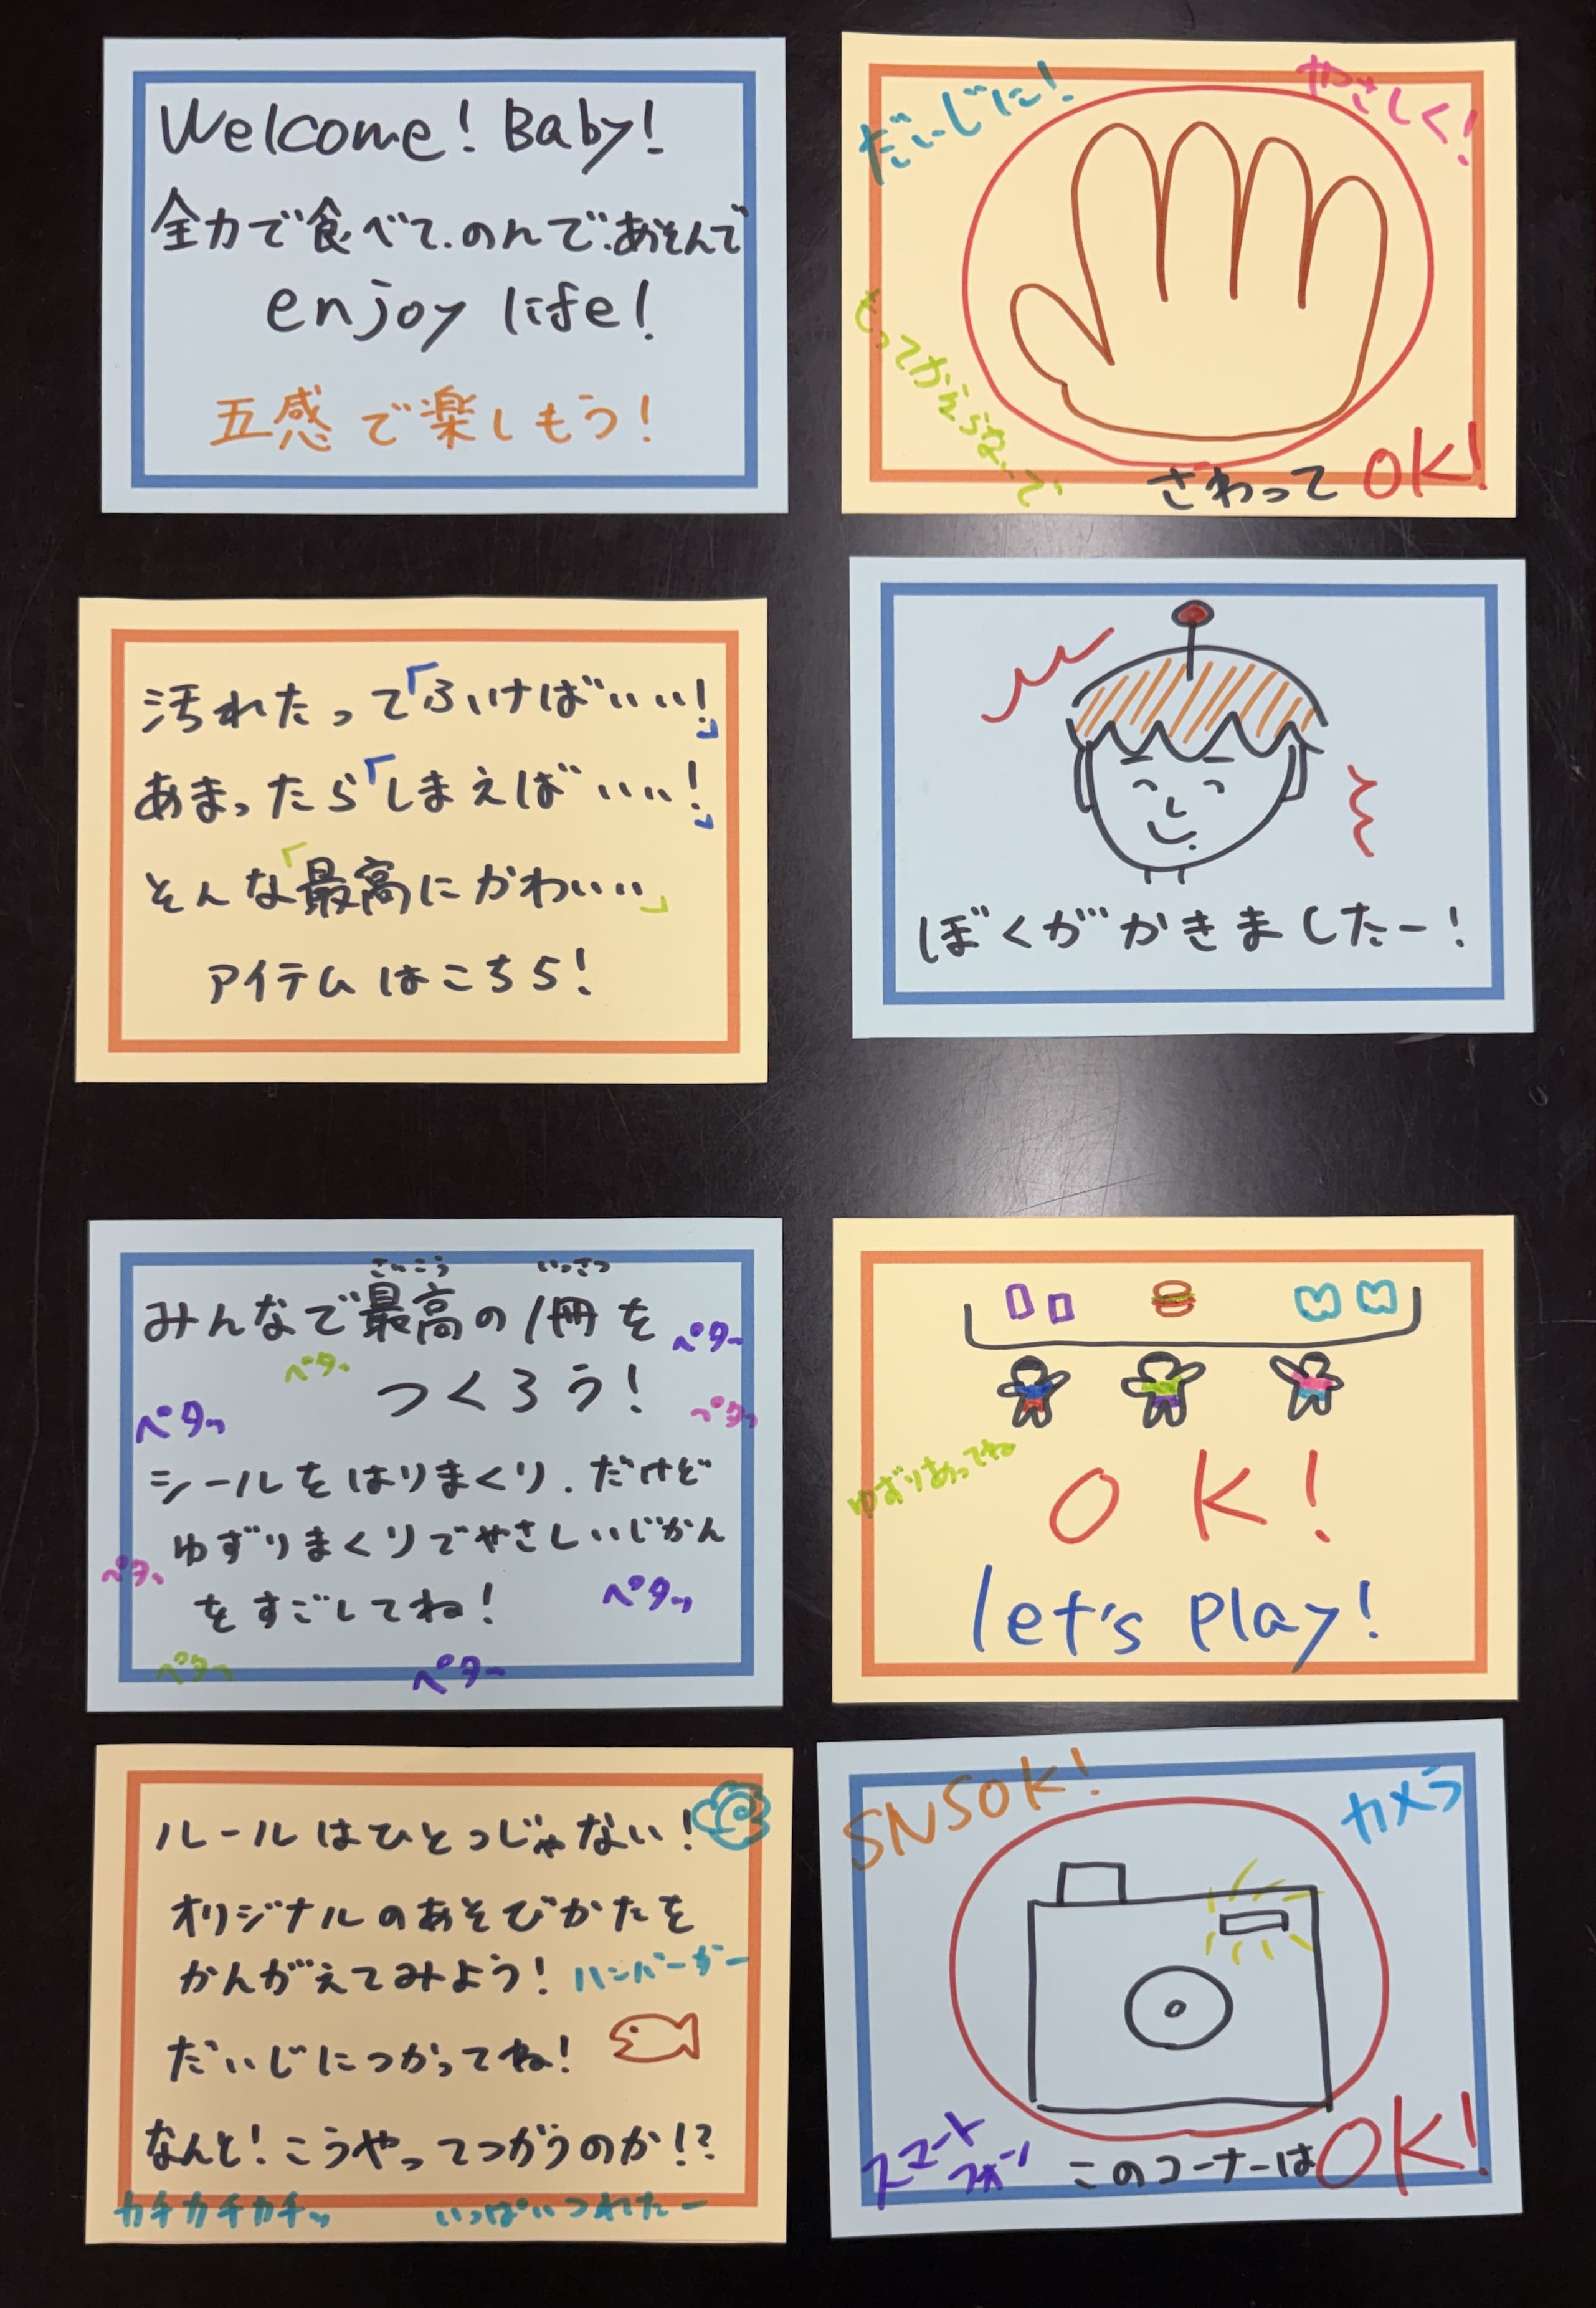 Welcome! Baby!
全力で食べて.のんで.あそんで
enjoy life!
五感で楽しもう!
だいじに!
やさしく!
もってかえらないで
さわってOK!
汚れたって「ふけばいい!」
あまったら「しまえばいい!」
そんな「最高にかわいい」
アイテムはこちら!
ぼくがかきましたー!
さいこう いっさつ
みんなで最高の1冊を
ペター
ペター
つくろう!
ペタッ
ペタッ
シールをはりまくり.だけど
ゆずりまくりでやさしいじかん
ペタッ
をすごしてね!
ペタッ
ペタッ
ペター
ゆずりあってね
OK!
let's play!
ルールはひとつじゃない!
オリジナルのあそびかたを
かんがえてみよう!
ハンバーガー
だいじにつかってね!
なんと!こうやってつがうのか!?
カチカチカチッ
いっぱいつれたー
SNSOK!
カメラ
スマート
フォン
このコーナーはOK!